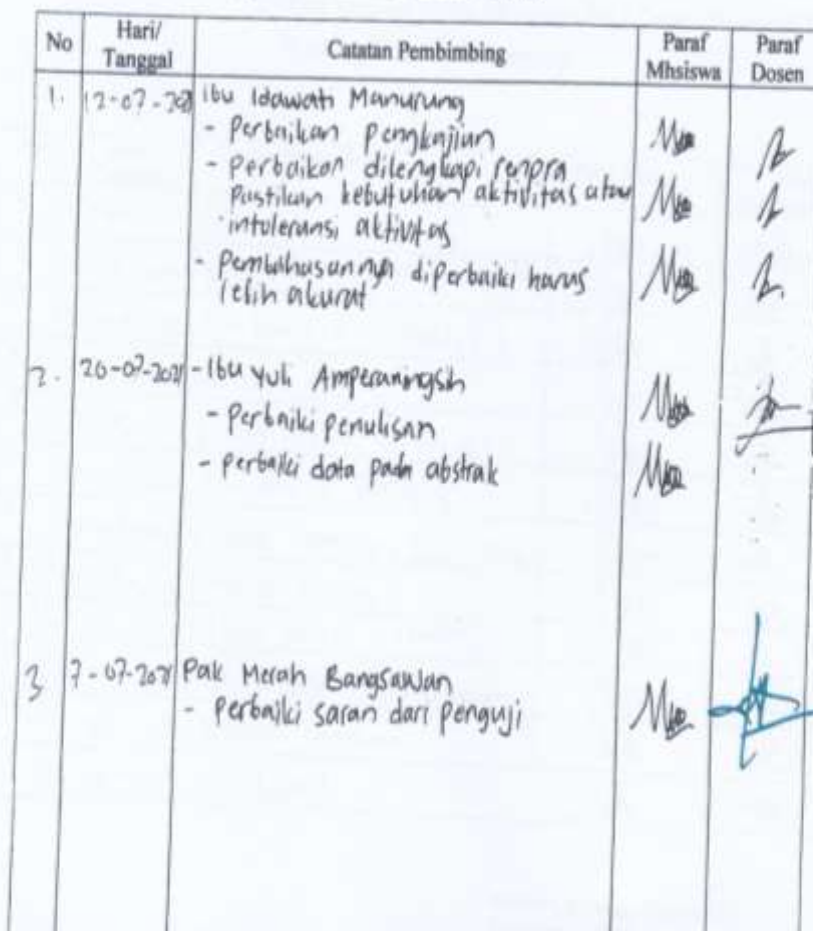 No Hari/ Tanggal Catatan Pembimbing Paraf Mhsiswa Paraf Dosen
1. 12-07-2021 Ibu Idawati Manurung
- Perbaikan Pengkajian
- Perbaikan dilengkapi renpra
Pastikan kebutuhan aktivitas atau
intoleransi aktivitas
- Pembahasannya diperbaiki harus
lebih akurat
2. 20-07-2021 - Ibu Yuli Amperaningsih
- Perbaiki penulisan
- perbaiki data pada abstrak
3 7-07-2021 Pak Merah Bangsawan
- Perbaiki saran dari penguji